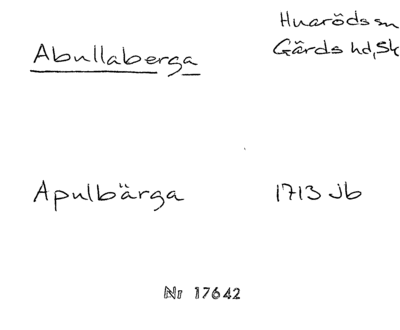 Huaröds sn
Abullaberga
Gärds hd, Sk
Apulbärga 1713 Jb
Nr 17642